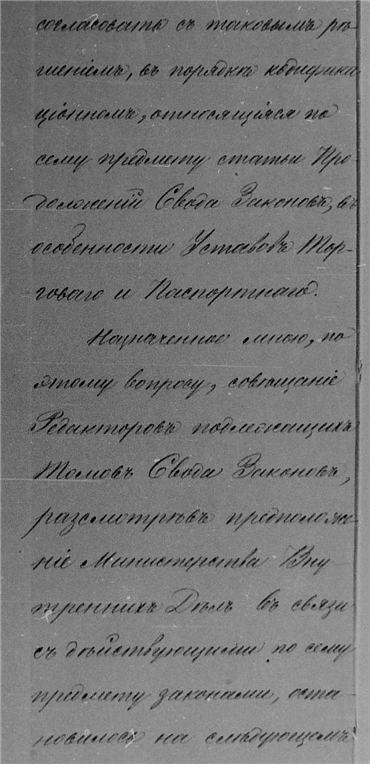 согласовать съ таковымъ рѣ-
шеніемъ, въ порядкѣ кодифика
ціонномъ, относящіяся по
сему предмету статьи Про-
долженій Свода Законовъ, въ
особенности Уставовъ Тор-
говаго и Паспортнаго.
Назначенное мною, по
этому вопросу, совѣщаніе
Редакторовъ подлежащихъ
Томовъ Свода Законовъ,
разсмотрѣвъ предположе-
ніе Министерства Вну-
треннихъ Дѣлъ въ связи
съ дѣйствующими по сему
предмету законами, оста-
новилось на слѣдующемъ